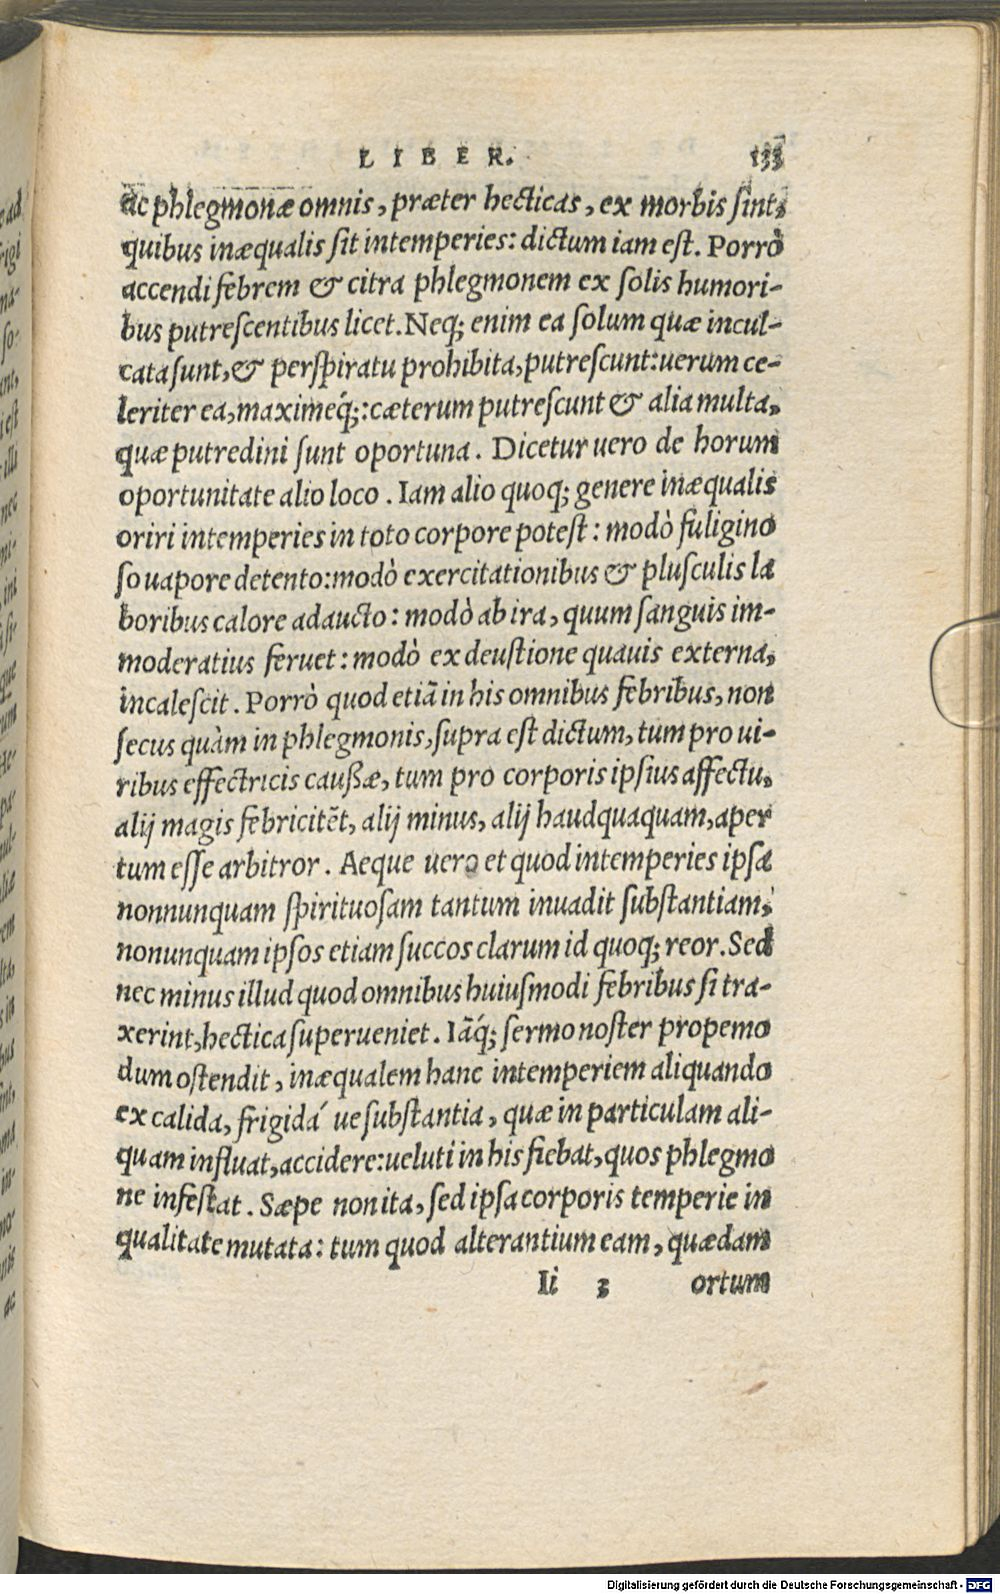 LIBER. 133
ac phlegmonæ omnis, præter hecticas, ex morbis sint,
quibus inæqualis sit intemperies: dictum iam est. Porrò
accendi febrem & citra phlegmonem ex solis humori-
bus putrescentibus licet. Neq; enim ea solum quæ incul-
cata sunt, & perspiratu prohibita, putrescunt: uerum ce-
leriter ea, maximéq;: cæterum putrescunt & alia multa,
quæ putredini sunt oportuna. Dicetur uero de horum
oportunitate alio loco. Iam alio quoq; genere inæqualis
oriri intemperies in toto corpore potest: modò fuligino
so uapore detento: modò exercitationibus & plusculis la
boribus calore adaucto: modò ab ira, quum sanguis im-
moderatius feruet: modò ex deustione quauis externa,
incalescit. Porrò quod etiã in his omnibus febribus, non
secus quàm in phlegmonis, supra est dictum, tum pro ui-
ribus effectricis caußæ, tum pro corporis ipsius affectu,
alij magis febricitẽt, alij minus, alij haudquaquam, aper
tum esse arbitror. Aeque uero et quod intemperies ipsa
nonnunquam spirituosam tantum inuadit substantiam,
nonunquam ipsos etiam succos clarum id quoq; reor. Sed
nec minus illud quod omnibus huiusmodi febribus si tra-
xerint, hectica superueniet. Iãq́; sermo noster propemo
dum ostendit, inæqualem hanc intemperiem aliquando
ex calida, frigidá ue substantia, quæ in particulam ali-
quam influat, accidere: ueluti in his fiebat, quos phlegmo
ne infestat. Sæpe non ita, sed ipsa corporis temperie in
qualitate mutata: tum quod alterantium eam, quædam
Ii 3 ortum
Digitalisierung gefördert durch die Deutsche Forschungsgemeinschaft - DFG